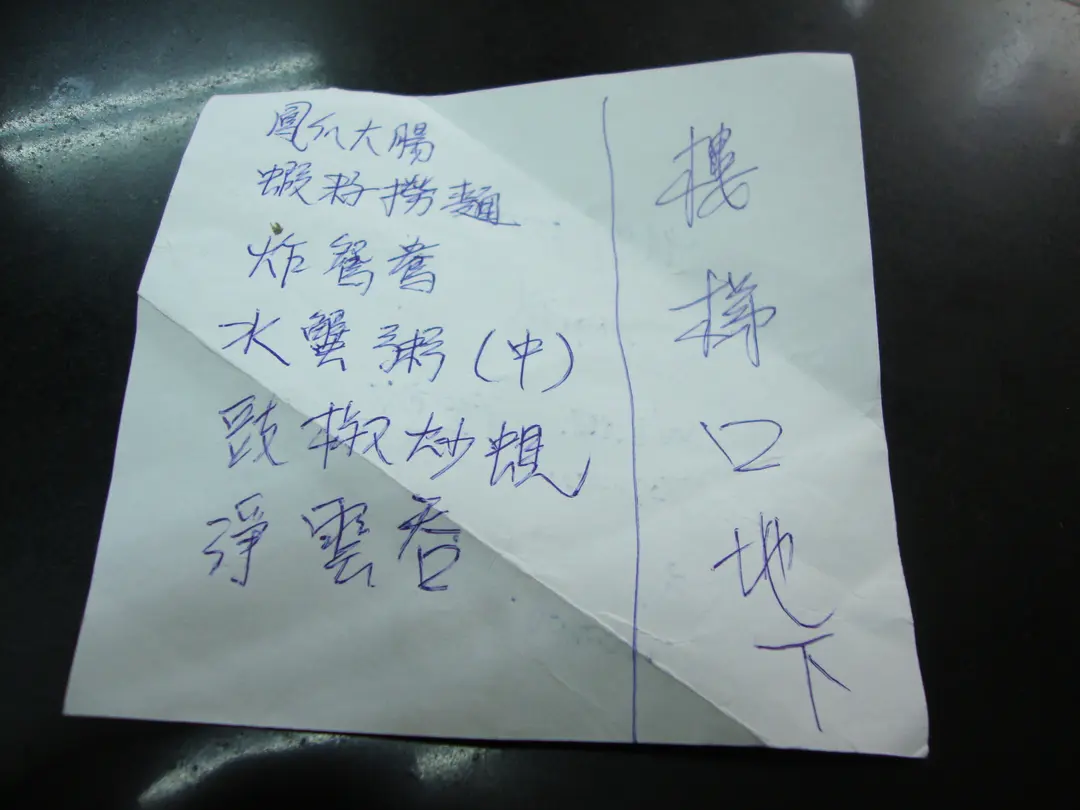 鳳爪大腸
蝦籽撈麵
炸鴛鴦
水蟹粥(中)
豉椒炒蜆
淨雲吞
樓梯口地下